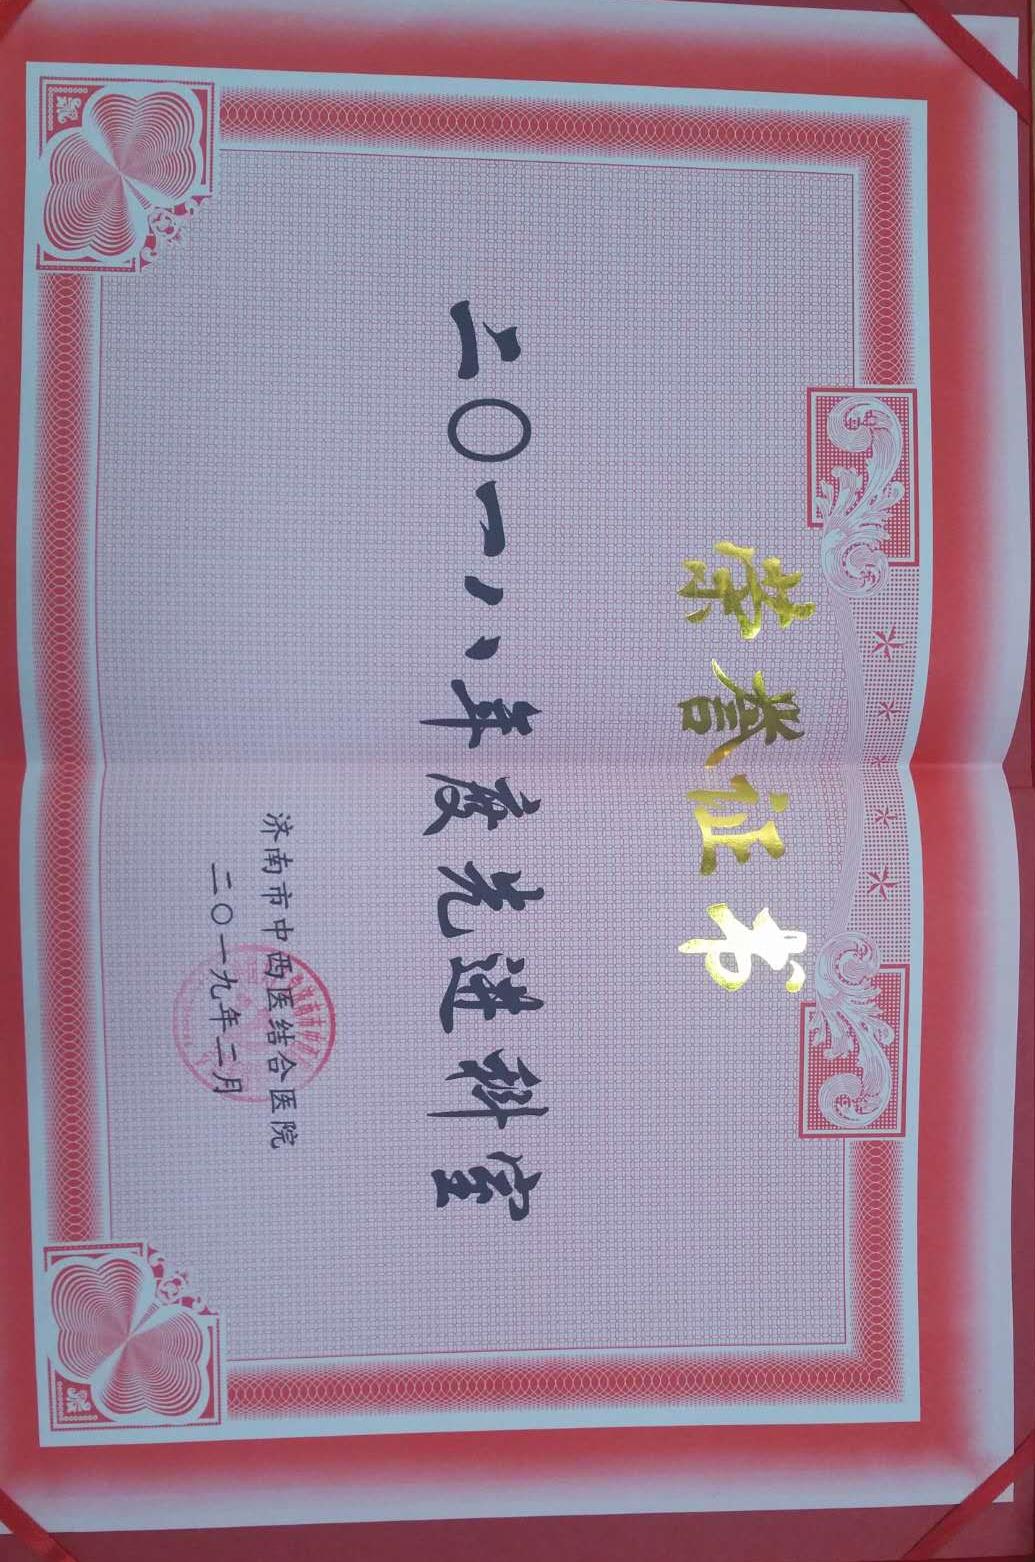 荣誉证书
二〇一八年度先进科室
济南市中西医结合医院
二〇一九年二月